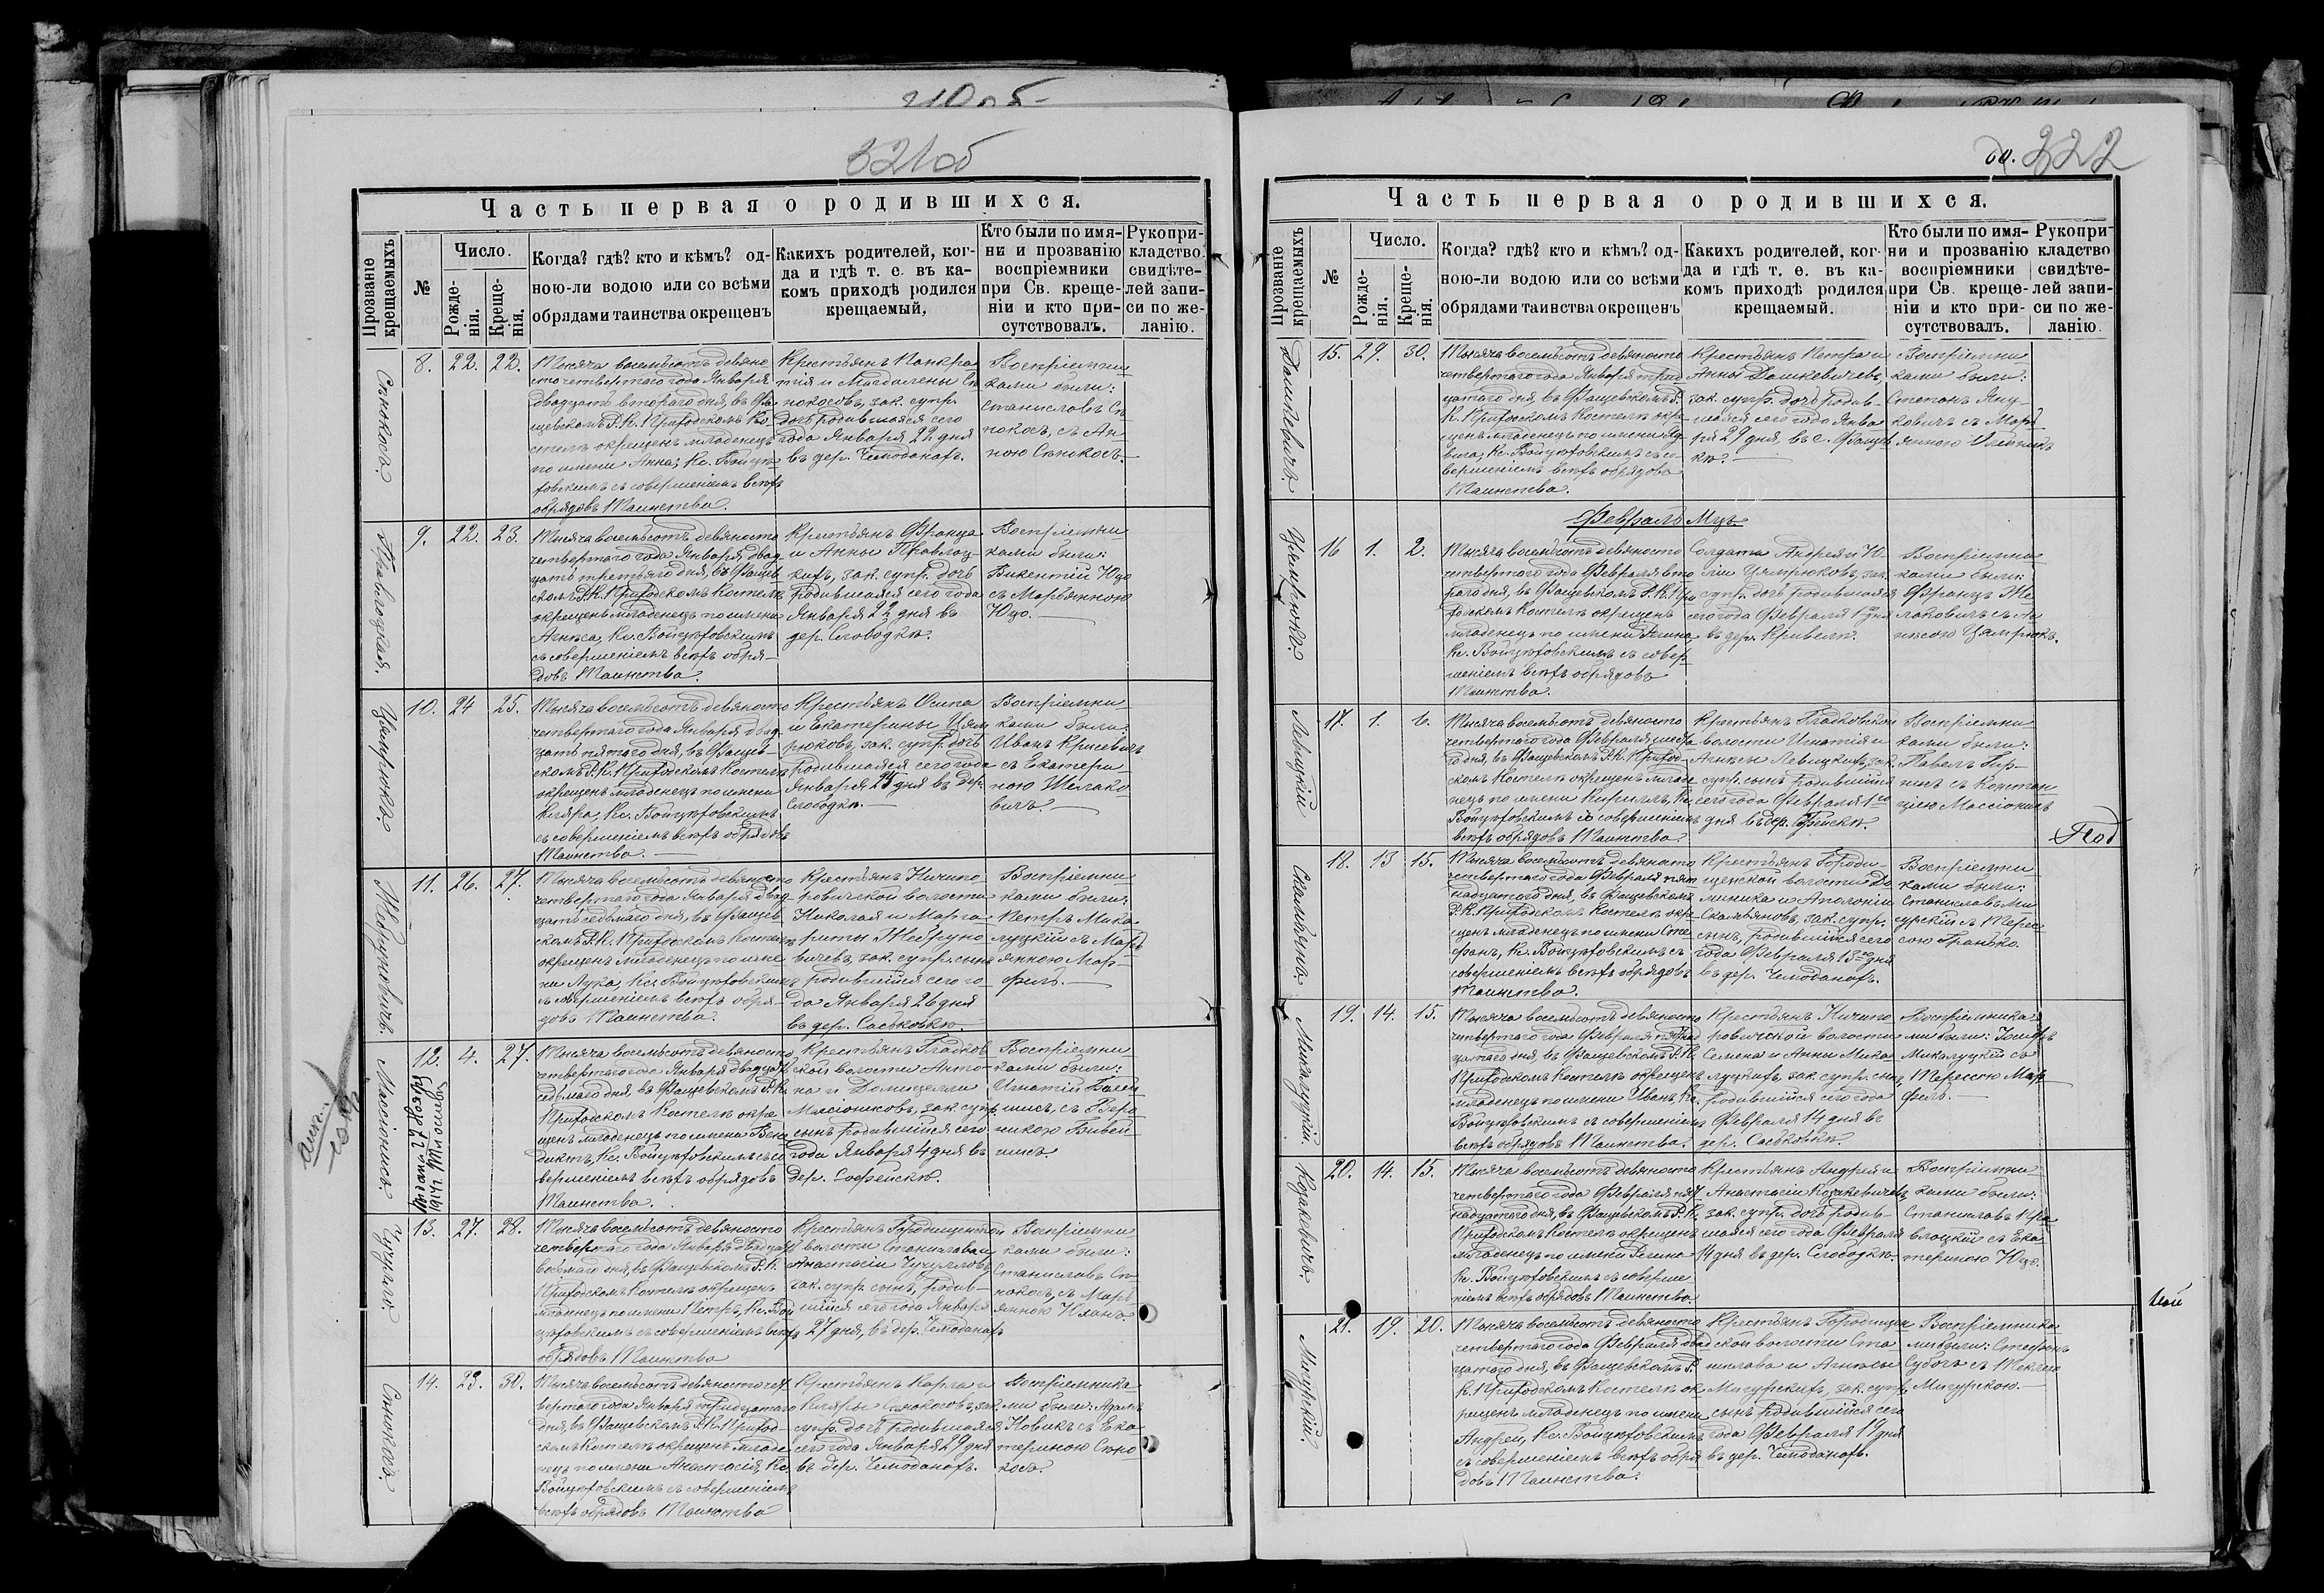 321об
Часть первая о родившихся.
Прозваніе крещаемыхъ
№
Число.
Рожде-
нія.
Креще-
нія.
Когда? гдѣ? кто и кѣмъ? од-
ною-ли водою или со всѣми
обрядами таинства окрещенъ
Какихъ родителей, ког-
да и гдѣ т. е. въ ка-
комъ приходѣ родился
крещаемый.
Кто были по имя-
ни и прозванію
воспріемники
при Св. креще-
ніи и кто при-
сутствовалъ.
Рукопри-
кладство
свидѣте-
лей запи-
си по же-
ланію.
Сѣнокосъ.
8. 22. 22.
Тысяча восемьсотъ девяно
сто четвертаго года Января
двадцать втораго дня, въ Фа
щевскомъ Р. К. Приходскомъ Ко
стелѣ окрещенъ младенецъ
по имени Анна, Кс. Войцѣ
ховскимъ съ совершеніемъ всѣхъ
обрядовъ Таинства.
Крестьянъ Панкра
тія и Магдалены Сѣ
нокосовъ, зак. супр.
дочь родившаяся сего
года Января 22 дня
въ дер. Чемоданахъ.
Воспріемни
ками были:
Станиславъ Сѣ
нокосъ, съ Ан
ною Сѣнокосъ.
9. 22. 23.
Тысяча восемьсотъ девяносто
четвертаго года Января двад
цать третьяго дня, въ Фащев
скомъ Р. К. Приходскомъ Костелѣ
окрещенъ младенецъ по имени
Агнѣса, Кс. Войцѣховскимъ
съ совершеніемъ всѣхъ обря-
довъ Таинства.
Крестьянъ Франца
и Анны
зак. супр. дочь
родившаяся сего года
Января 22 дня въ
дер. Слободкѣ.
Воспріемни
ками были:
Викентій Юцо
съ Марьянною
Юцо.
Цямрюкъ.
10. 24 25.
Тысяча восемьсотъ девяносто
четвертаго года Января двад
цать пятаго дня, въ Фащев-
скомъ Р. К. Приходскомъ Костелѣ
окрещенъ младенецъ по имени
Кляра, Кс. Войцѣховскимъ
съ совершеніемъ всѣхъ обрядовъ
Таинства.
Крестьянъ Осипа
и Екатерины Цям
рюковъ, зак. супр. дочь
родившаяся сего года
Января 24 дня въ дер.
Слободкѣ.
Воспріемни
ками были:
Иванъ Крисевичъ
съ Екатери
ною Желако
вичъ.
Жебруновичъ.
11. 26. 27.
Тысяча восемьсотъ девяносто
четвертаго года Января двад
цать седьмаго дня, въ Фащев
скомъ Р. К. Приходскомъ Костелѣ
окрещенъ младенецъ по име
ни Лука, Кс. Войцѣховскимъ
съ совершеніемъ всѣхъ обря-
довъ Таинства.
Крестьянъ Ничипо
ровичской волости
Николая и Марга
риты Жебруно
вичевъ, зак. супр. сынъ
родившійся сего го
да Января 26 дня
въ дер. Саськовкѣ.
Воспріемни
ками были:
Петръ Мика
луцкій съ Марь
янною Мар-
филь.
Массіонисъ.
12. 4. 27.
Тысяча восемьсотъ девяносто
четвертаго года Января двадцать
седьмаго дня, въ Фащевскомъ Р. К.
Приходскомъ Костелѣ окре
щенъ младенецъ по имени Бене
диктъ, Кс. Войцѣховскимъ съ со
вершеніемъ всѣхъ обрядовъ
Таинства.
Крестьянъ Гладков
ской волости Анто-
на и Домицелли
Массіонисовъ, зак. супр.
сынъ родившійся сего
года Января 4 дня въ
дер. Софейскѣ.
Воспріемни
ками были:
Игнатій
съ Веро
никою
Чучулло.
13. 27. 28.
Тысяча восемьсотъ девяносто
четвертаго года Января двадцать
восьмаго дня, въ Фащевскомъ Р. К.
Приходскомъ Костелѣ окрещенъ
младенецъ по имени Петръ, Кс. Вой
цѣховскимъ съ совершеніемъ всѣхъ
обрядовъ Таинства
Крестьянъ Городищенской
волости Станислава и
Анастасіи Чучулловъ,
зак. супр. сынъ, родив-
шійся сего года Января
27 дня, въ дер. Чемоданахъ
Воспріемни
ками были:
Станиславъ Сѣ
нокосъ, съ Марь
янною
Сѣнокосъ.
14. 29. 30.
Тысяча восемьсотъ девяносто чет
вертаго года Января тридцатаго
дня, въ Фащевскомъ Р. К. Приход-
скомъ Костелѣ окрещенъ младе
нецъ по имени Анастасія, Кс.
Войцѣховскимъ съ совершеніемъ
всѣхъ обрядовъ Таинства
Крестьянъ Карла и
Кляры Сѣнокосовъ, зак.
супр. дочь родившаяся
сего года Января 29 дня
въ дер. Чемоданахъ.
Воспріемника
ми были: Адамъ
Новикъ съ Ека
териною Сѣно
косъ.
322
Часть первая о родившихся.
Прозваніе крещаемыхъ
№
Число.
Рожде-
нія.
Креще-
нія.
Когда? гдѣ? кто и кѣмъ? од-
ною-ли водою или со всѣми
обрядами таинства окрещенъ
Какихъ родителей, ког-
да и гдѣ т. е. въ ка-
комъ приходѣ родился
крещаемый.
Кто были по имя-
ни и прозванію
воспріемники
при Св. креще-
ніи и кто при-
сутствовалъ.
Рукопри-
кладство
свидѣте-
лей запи-
си по же-
ланію.
Дашкевичъ.
15. 29. 30.
Тысяча восемьсотъ девяносто
четвертаго года Января трид
цатаго дня, въ Фащевскомъ Р.
К. Приходскомъ Костелѣ окре
щенъ младенецъ по имени Яд
вига, Кс. Войцѣховскимъ съ со
вершеніемъ всѣхъ обрядовъ
Таинства.
Крестьянъ Петра и
Анны Дашкевичевъ,
зак. супр. дочь родив-
шаяся сего года Янва
ря 29 дня, въ с. Фащев
кѣ.
Воспріемни
ками были:
Степанъ Яцу
ковичъ съ Марь
янною
Февраль Мцъ
Цямрюкъ.
16 1. 2.
Тысяча восемьсотъ девяносто
четвертаго года Февраля вто
раго дня, въ Фащевскомъ Р. К. При
ходскомъ Костелѣ окрещенъ
младенецъ по имени Регина,
Кс. Войцѣховскимъ съ совер-
шеніемъ всѣхъ обрядовъ
Таинства.
Солдата Андрея и Ю-
ліи Цямрюковъ, зак.
супр. дочь родившаяся
сего года Февраля 1го дня
въ дер. Кривели.
Воспріемни
ками были:
Францъ Же
лаковичъ съ Аг
нѣсою Цямрюкъ.
Левицкій
17. 1. 6.
Тысяча восемьсотъ девяносто
четвертаго года Февраля шеста
го дня, въ Фащевскомъ Р. К. Приход-
скомъ Костелѣ окрещенъ младе
нецъ по имени Кириллъ, Кс.
Войцѣховскимъ съ совершеніемъ
всѣхъ обрядовъ Таинства.
Крестьянъ Гладковской
волости Игнатія и
Агнѣсы Левицкихъ, зак.
супр. сынъ родившійся
сего года Февраля 1го
дня въ дер. Софейскѣ.
Воспріемни
ками были:
Павелъ Гир-
нисъ съ Констан
ціею Массіонисъ
Под
Скамьянъ.
18. 13 15.
Тысяча восемьсотъ девяносто
четвертаго года Февраля пят
надцатаго дня, въ Фащевскомъ
Р. К. Приходскомъ Костелѣ окре-
щенъ младенецъ по имени Сте
фанъ, Кс. Войцѣховскимъ съ
совершеніемъ всѣхъ обрядовъ
Таинства.
Крестьянъ Городи-
щенской волости До
миника и Аполоніи
Скамьяновъ, зак. супр.
сынъ, родившійся сего
года Февраля 13го дня
въ дер. Чемоданахъ.
Воспріемни
ками были:
Станиславъ Ми
гурскій съ Терес
сою Гранько.
Микалуцкій.
19. 14. 15.
Тысяча восемьсотъ девяносто
четвертаго года Февраля пятнад
цатаго дня, въ Фащевскомъ Р. К.
Приходскомъ Костелѣ окрещенъ
младенецъ по имени Иванъ, Кс.
Войцѣховскимъ съ совершеніемъ
всѣхъ обрядовъ Таинства.
Крестьянъ Ничипо
ровичской волости
Семена и Анны Мика
луцкихъ, зак. супр. сынъ,
родившійся сего года
Февраля 14 дня въ
дер. Саськовкѣ.
Воспріемника
ми были: Іосифъ
Микалуцкій съ
Терессою Мар
филь.
Козакевичъ.
20. 14. 15.
Тысяча восемьсотъ девяносто
четвертаго года Февраля пят
надцатаго дня, въ Фащевскомъ Р. К.
Приходскомъ Костелѣ окрещенъ
младенецъ по имени Регина
Кс. Войцѣховскимъ съ соверше
ніемъ всѣхъ обрядовъ Таинства.
Крестьянъ Андрея и
Анастасіи Козакевичевъ,
зак. супр. дочь родив-
шаяся сего года Февраля
14 дня въ дер. Слободкѣ.
Воспріемни
ками были:
Станиславъ
съ Ека
териною Юцо.
Мигурскій.
21. 19. 20.
Тысяча восемьсотъ девяносто
четвертаго года Февраля двад
цатаго дня, въ Фащевскомъ Р.
К. Приходскомъ Костелѣ ок
рещенъ младенецъ по имени
Андрей, Кс. Войцѣховскимъ
съ совершеніемъ всѣхъ обря
довъ Таинства.
Крестьянъ Городищен
ской волости Ста
нислава и Агнѣсы
Мигурскихъ, зак. супр.
сынъ родившійся сего
года Февраля 19 дня
въ дер. Чемоданахъ.
Воспріемника
ми были: Стефанъ
Субочъ съ Теклею
Мигурскою.